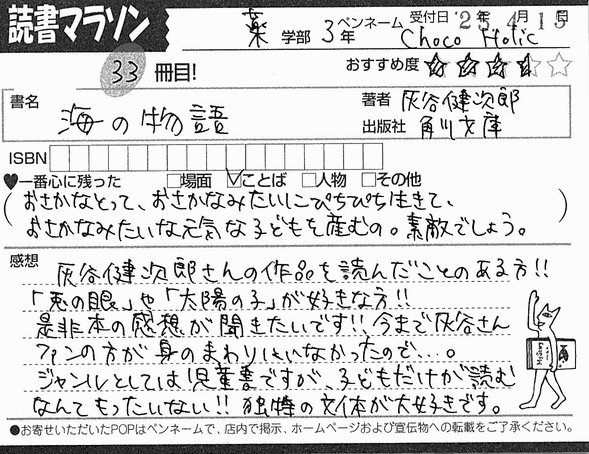 読書マラソン
薬 学部 3年 ペンネーム 受付日 '25年 4月 15日
Choco Holic
33 冊目!
おすすめ度 ★★★☆☆
書名 海の物語
著者 灰谷健次郎
出版社 角川文庫
ISBN
♥一番心に残った □場面 ☑ことば □人物 □その他
(おさかなとって、おさかなみたいにぴちぴち生きて、
おさかなみたいな元気な子どもを産むの。素敵でしょう。)
感想
灰谷健次郎さんの作品を読んだことのある方!!
「兎の眼」や「太陽の子」が好きな方!!
是非本の感想が聞きたいです!! 今まで灰谷さん
ファンの方が身のまわりにいなかったので…。
ジャンルとしては児童書ですが、子どもだけが読む
なんてもったいない!! 独特の文体が大好きです。
●お寄せいただいたPOPはペンネームで、店内で掲示、ホームページおよび宣伝物への転載をご了承ください。